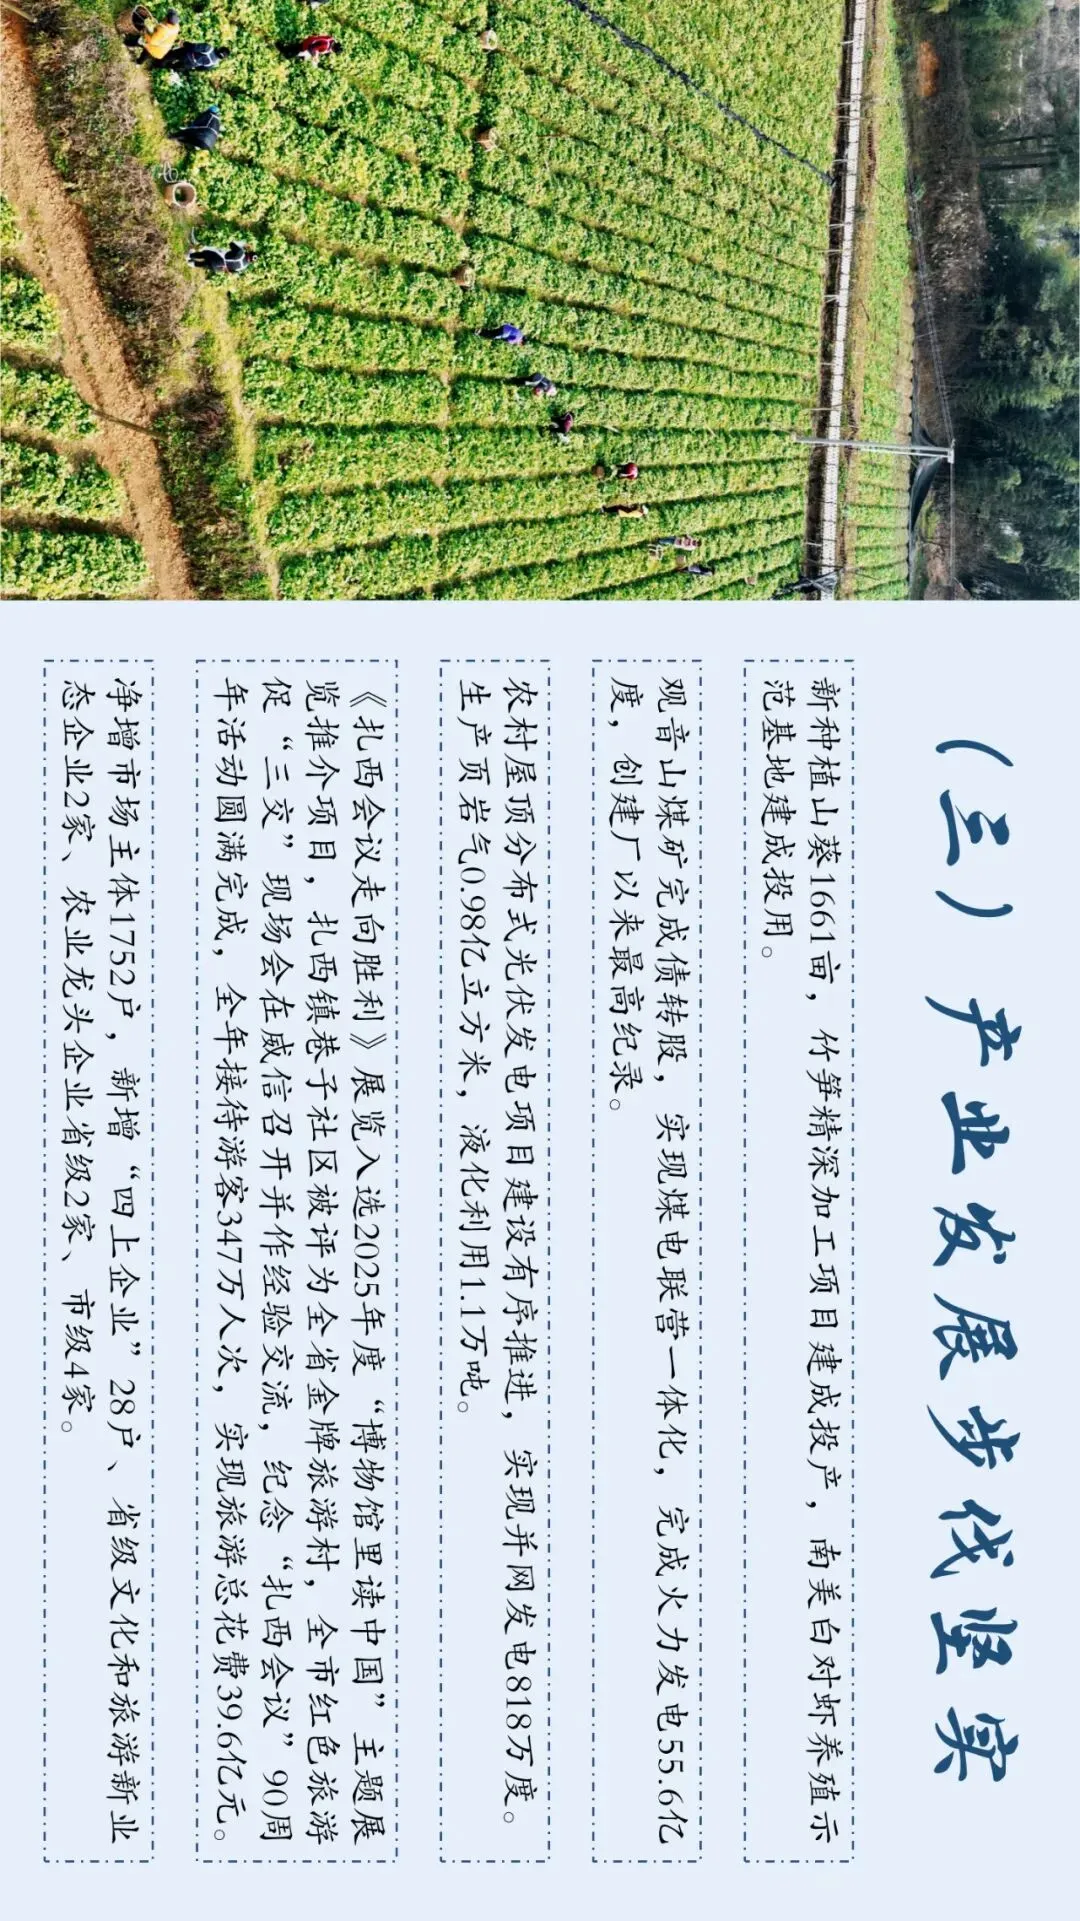 （三）产业发展步伐坚实
新种植山葵1661亩，竹笋精深加工项目建成投产，南美白对虾养殖示
范基地建成投用。
观音山煤矿完成债转股，实现煤电联营一体化，完成火力发电55.6亿
度，创建厂以来最高纪录。
农村屋顶分布式光伏发电项目建设有序推进，实现并网发电818万度。
生产页岩气0.98亿立方米，液化利用1.1万吨。
《扎西会议走向胜利》展览入选2025年度“博物馆里读中国”主题展
览推介项目，扎西镇巷子社区被评为全省金牌旅游村，全市红色旅游
促“三交”现场会在威信召开并作经验交流，纪念“扎西会议”90周
年活动圆满完成，全年接待游客347万人次，实现旅游总花费39.6亿元。
净增市场主体1752户，新增“四上企业”28户、省级文化和旅游新业
态企业2家、农业龙头企业省级2家、市级4家。